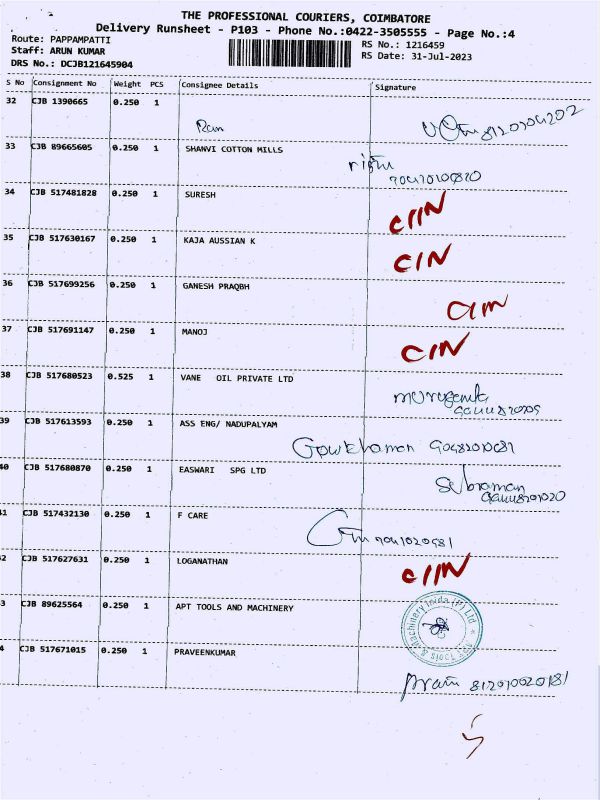 THE PROFESSIONAL COURIERS, COIMBATORE
Delivery Runsheet - P103 - Phone No.:0422-3505555 - Page No.:4
Route: PAPPAMPATTI
Staff: ARUN KUMAR
DRS No.: DCJB121645904
RS No.: 1216459
RS Date: 31-Jul-2023
S No Consignment No Weight PCS Consignee Details Signature
32 CJB 1390665 0.250 1
Ram
33 CJB 89665605 0.250 1 SHANVI COTTON MILLS
34 CJB 517481828 0.250 1 SURESH
CIIN
35 CJB 517630167 0.250 1 KAJA AUSSIAN K
CIN
36 CJB 517699256 0.250 1 GANESH PRAQBH
37 CJB 517691147 0.250 1 MANOJ
CIN
38 CJB 517680523 0.525 1 VANE OIL PRIVATE LTD
39 CJB 517613593 0.250 1 ASS ENG/ NADUPALYAM
40 CJB 517680870 0.250 1 EASWARI SPG LTD
41 CJB 517432130 0.250 1 F CARE
42 CJB 517627631 0.250 1 LOGANATHAN
CIIN
3 CJB 89625564 0.250 1 APT TOOLS AND MACHINERY
4 CJB 517671015 0.250 1 PRAVEENKUMAR